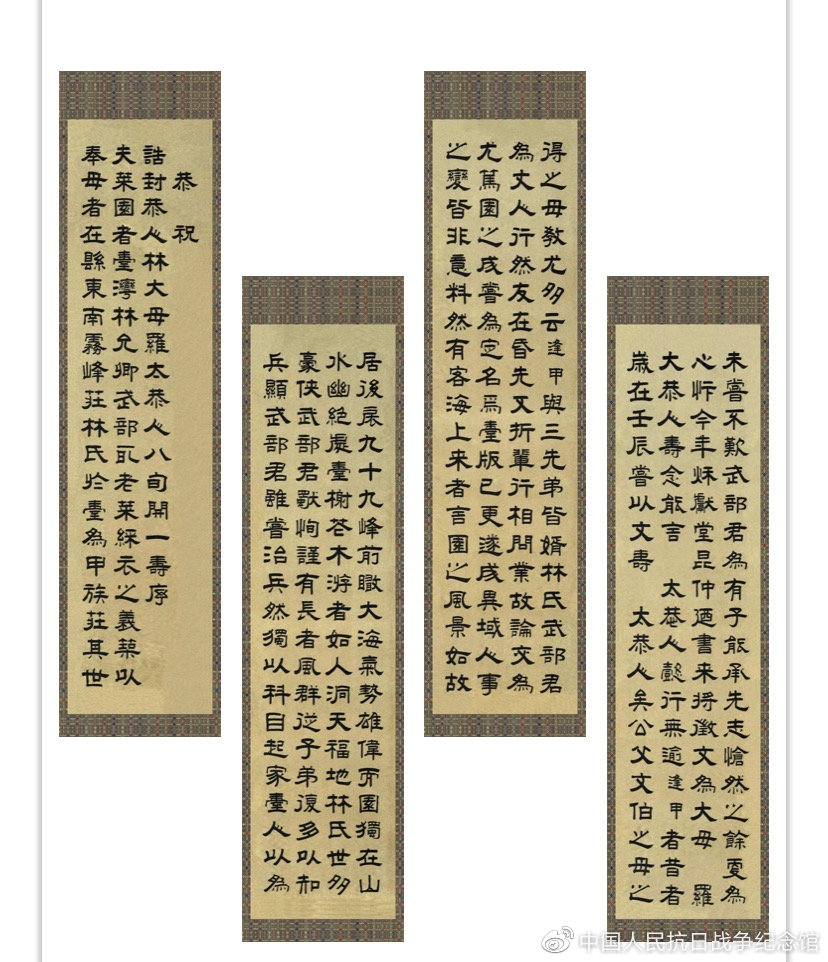 恭祝
誥封恭人林大母羅太恭人八旬開一壽序
夫萊園者臺灣林允卿武部取老萊綵衣之義築以
奉母者在縣東南霧峰莊林氏於臺為甲族莊其世
居後扆九十九峰前瞰大海氣勢雄偉而園獨在山
水幽絕處臺榭花木游者如入洞天福地林氏世多
豪俠武部君恂謹有長者風群從子弟復多以知
兵顯武部君雖嘗治兵然獨以科目起家臺人以為
得之母教尤多云逢甲與三先弟皆婿林氏武部君
為丈人行然友在昏先又折輩行相問業故論交為
尤篤園之成嘗為定名焉臺版已更遂成異域人事
之變皆非意料然有客海上來者言園之風景如故
未嘗不歎武部君為有子能承先志愴然之餘更為
心忻今年秋獻堂昆仲迺書來將徵文為大母 羅
大恭人壽念能言 太恭人懿行無逾逢甲者昔者
歲在壬辰嘗以文壽 太恭人矣公父文伯之母之
中国人民抗日战争纪念馆